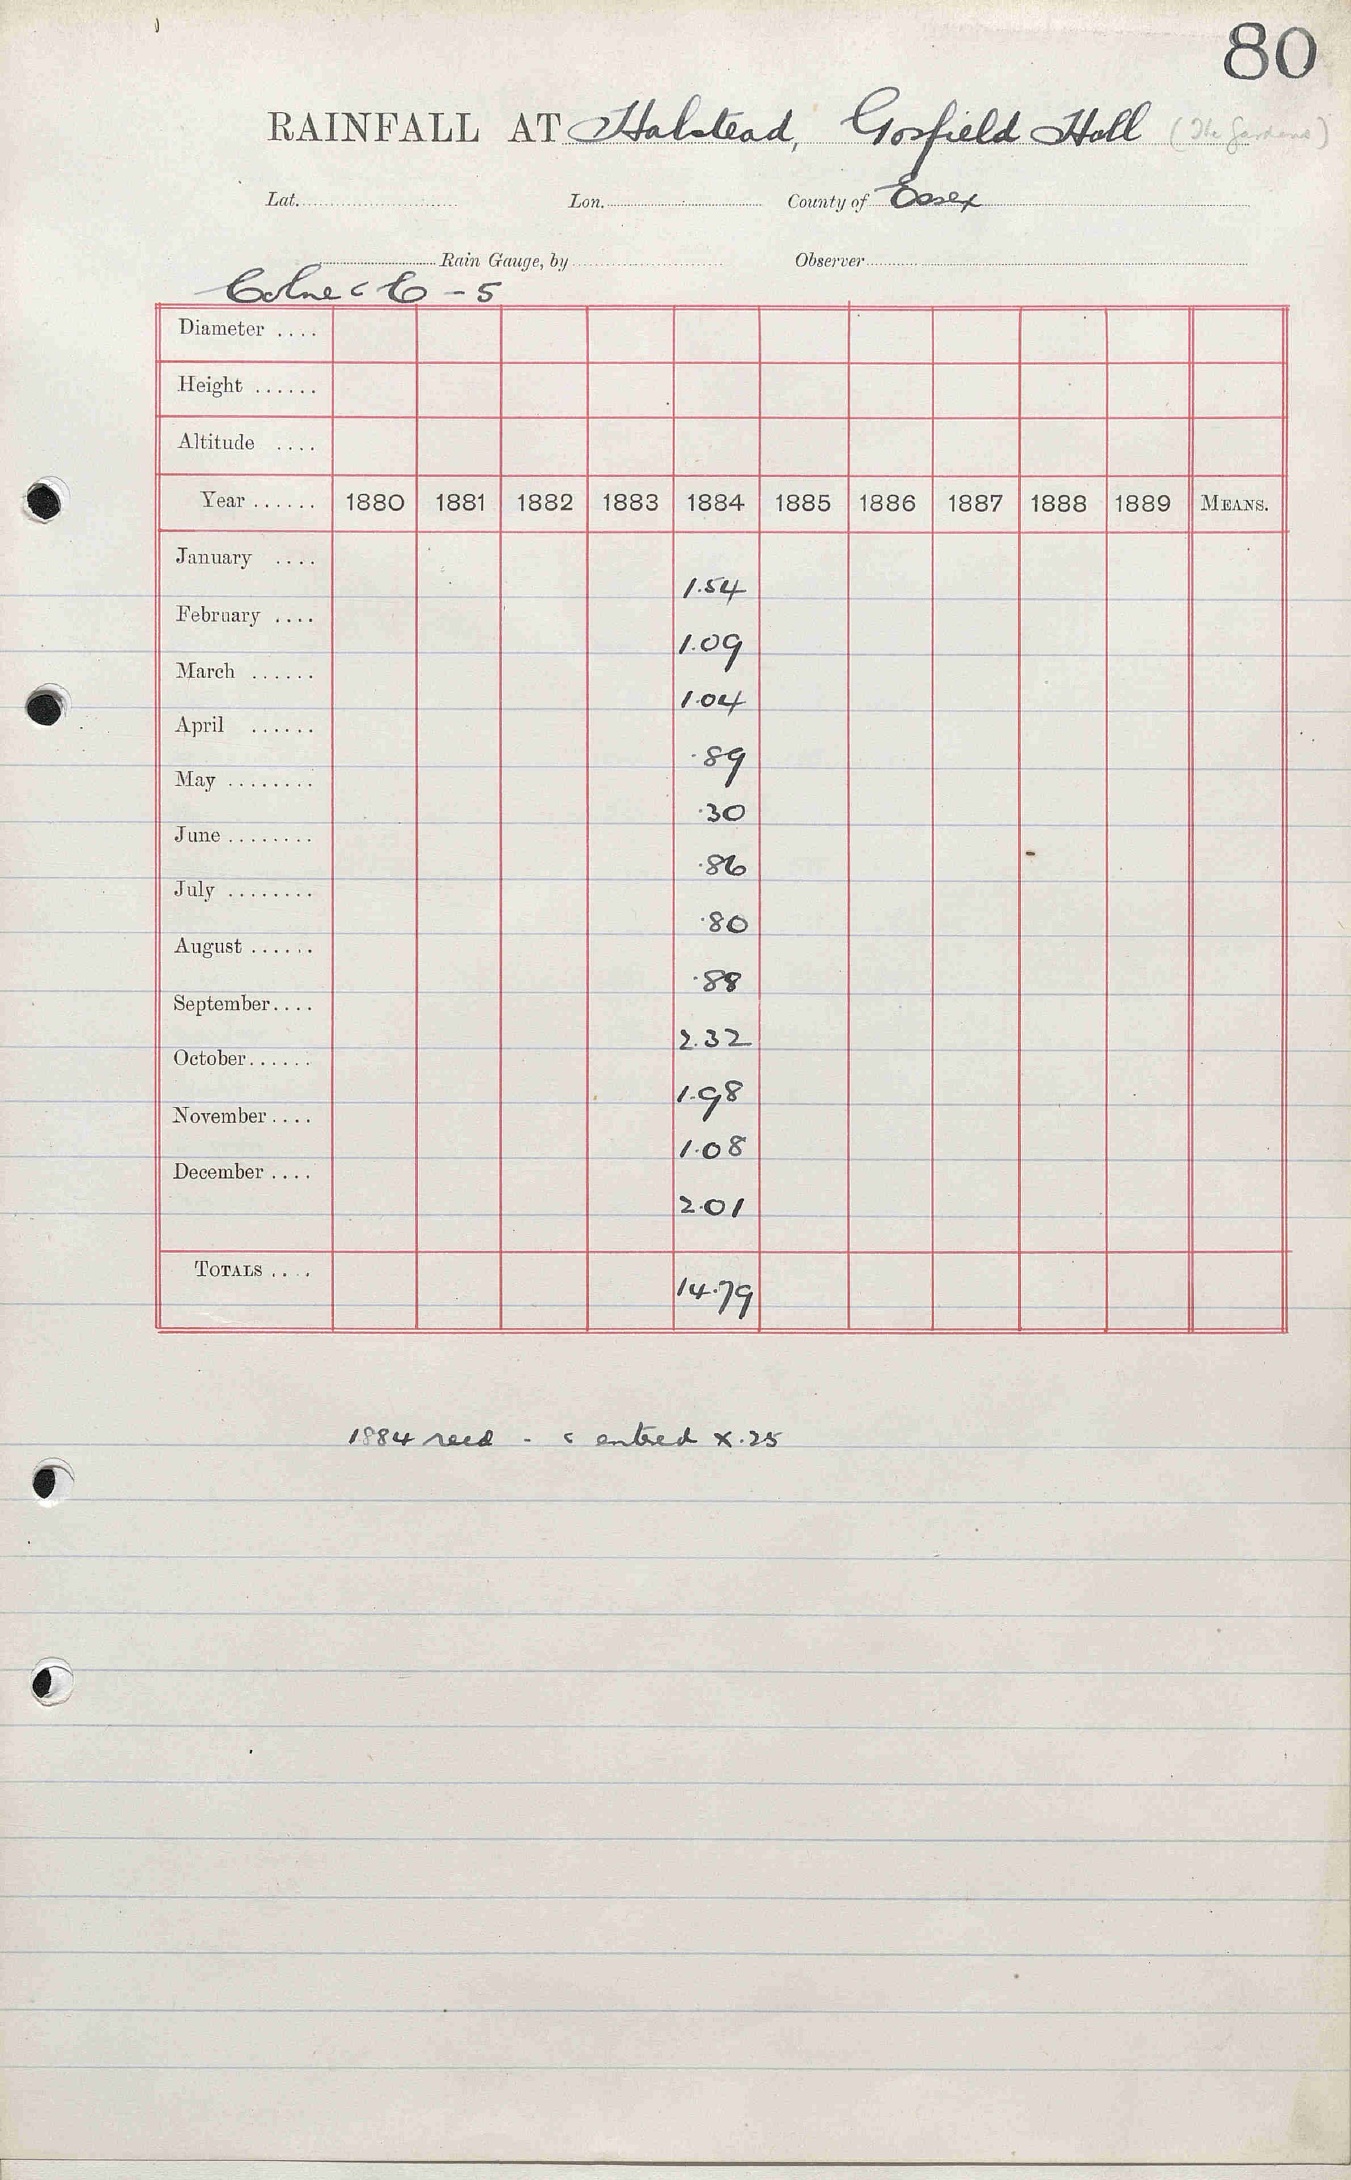 80
RAINFALL AT Halstead, Gosfield Hall (The Gardens)
Lat. Lon. County of Essex
Rain Gauge, by Observer
Colne < C - 5
Diameter ....
Height ......
Altitude ....
Year ...... 1880 1881 1882 1883 1884 1885 1886 1887 1888 1889 MEANS.
January .... 1.54
February .... 1.09
March ...... 1.04
April ...... .89
May ........ .30
June ........ .86
July ........ .80
August ...... .88
September.... 2.32
October...... 1.98
November.... 1.08
December .... 2.01
TOTALS .... 14.79
1884 recd - < entred X.25